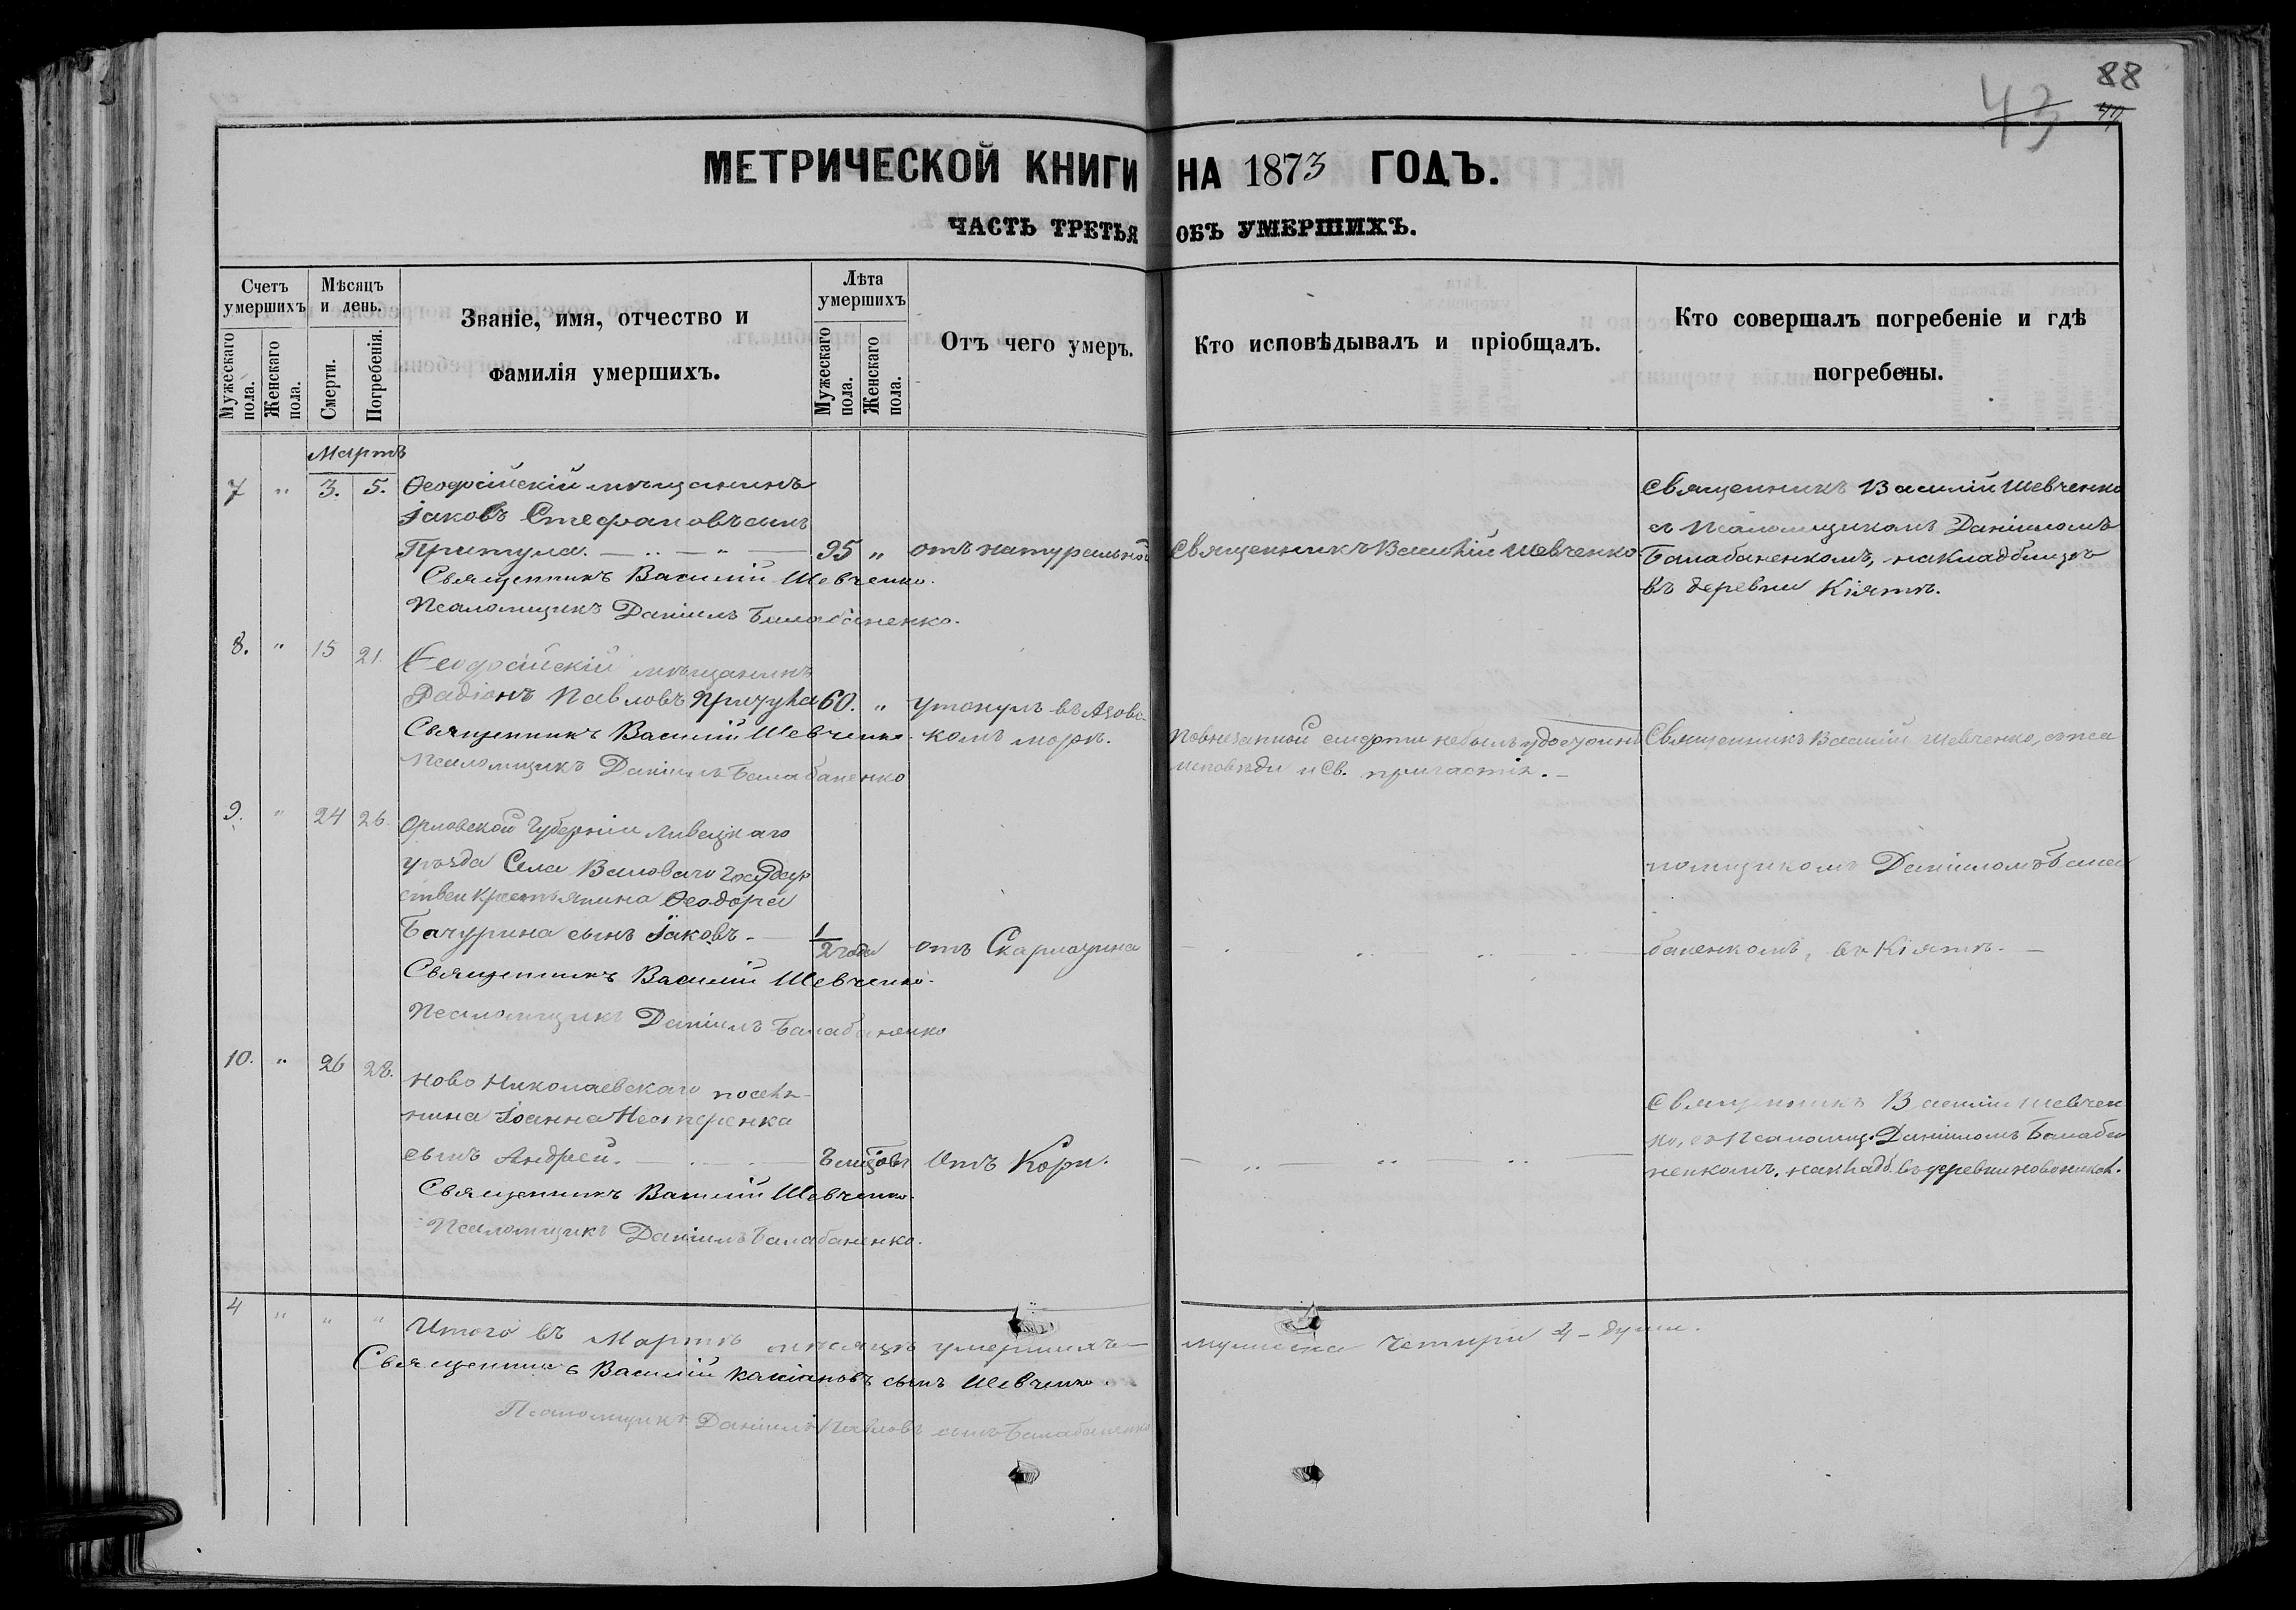 88
43
44
МЕТРИЧЕСКОЙ КНИГИ НА 1873 ГОДЪ.
ЧАСТЬ ТРЕТЬЯ ОБЪ УМЕРШИХЪ.
Счетъ умершихъ
Мужескаго пола.
Женскаго пола.
Мѣсяцъ и день.
Смерти.
Погребенія.
Званіе, имя, отчество и
фамилія умершихъ.
Лѣта умершихъ
Мужескаго пола.
Женскаго пола.
Отъ чего умеръ.
Кто исповѣдывалъ и пріобщалъ.
Кто совершалъ погребеніе и гдѣ
погребены.
Мартъ
7 " 3. 5. Ѳеодосійскій мѣщанинъ
Іаковъ Стефановъ сынъ
Притула. 95 " отъ натуральной
Священникъ Василій Шевченко.
Псаломщикъ Даніилъ Балабаненко.
Священникъ Василій Шевченко
Священникъ Василій Шевченко
съ Псаломщикомъ Даніиломъ
Балабаненкомъ, на кладбищѣ
въ деревни Кіятъ.
8. " 15 21. Ѳеодосійскій мѣщанинъ
Радіонъ Павловъ 60. " утонулъ въ Азовс-
Священникъ Василій Шевченко. комъ морѣ.
Псаломщикъ Даніилъ Балабаненко
По внезапной смерти небылъ удостоинъ
исповѣди и Св. причастія.
Священникъ Василій Шевченко, съ пса
ломщикомъ Даніиломъ Бала
баненкомъ, въ Кіятѣ.
9. " 24 26. Орловской Губерніи Ливецкаго
уѣзда Села Валоваго Государ
ствен Крестьянина Ѳеодора
Бачурина сынъ Іаковъ. 1/2 года отъ Скарлатина
Священникъ Василій Шевченко.
Псаломщикъ Даніилъ Балабаненко
10. " 26 28. Ново Николаевскаго поселя-
нина Іоанна Нестеренка
сынъ Андрей. Отъ Кори.
Священникъ Василій Шевченко.
Псаломщикъ Даніилъ Балабаненко.
Священникъ Василій Шевчен
ко, съ Псаломщ. Даніиломъ Балаба
ненкомъ, на кладб. въ деревни новоникол.
4 " " " Итого въ Мартѣ мѣсяцѣ умершихъ мужеска четыри 4 - души.
Священникъ Василій Касіановъ сынъ Шевченко.
Псаломщикъ Даніилъ Павловъ сынъ Балабаненко